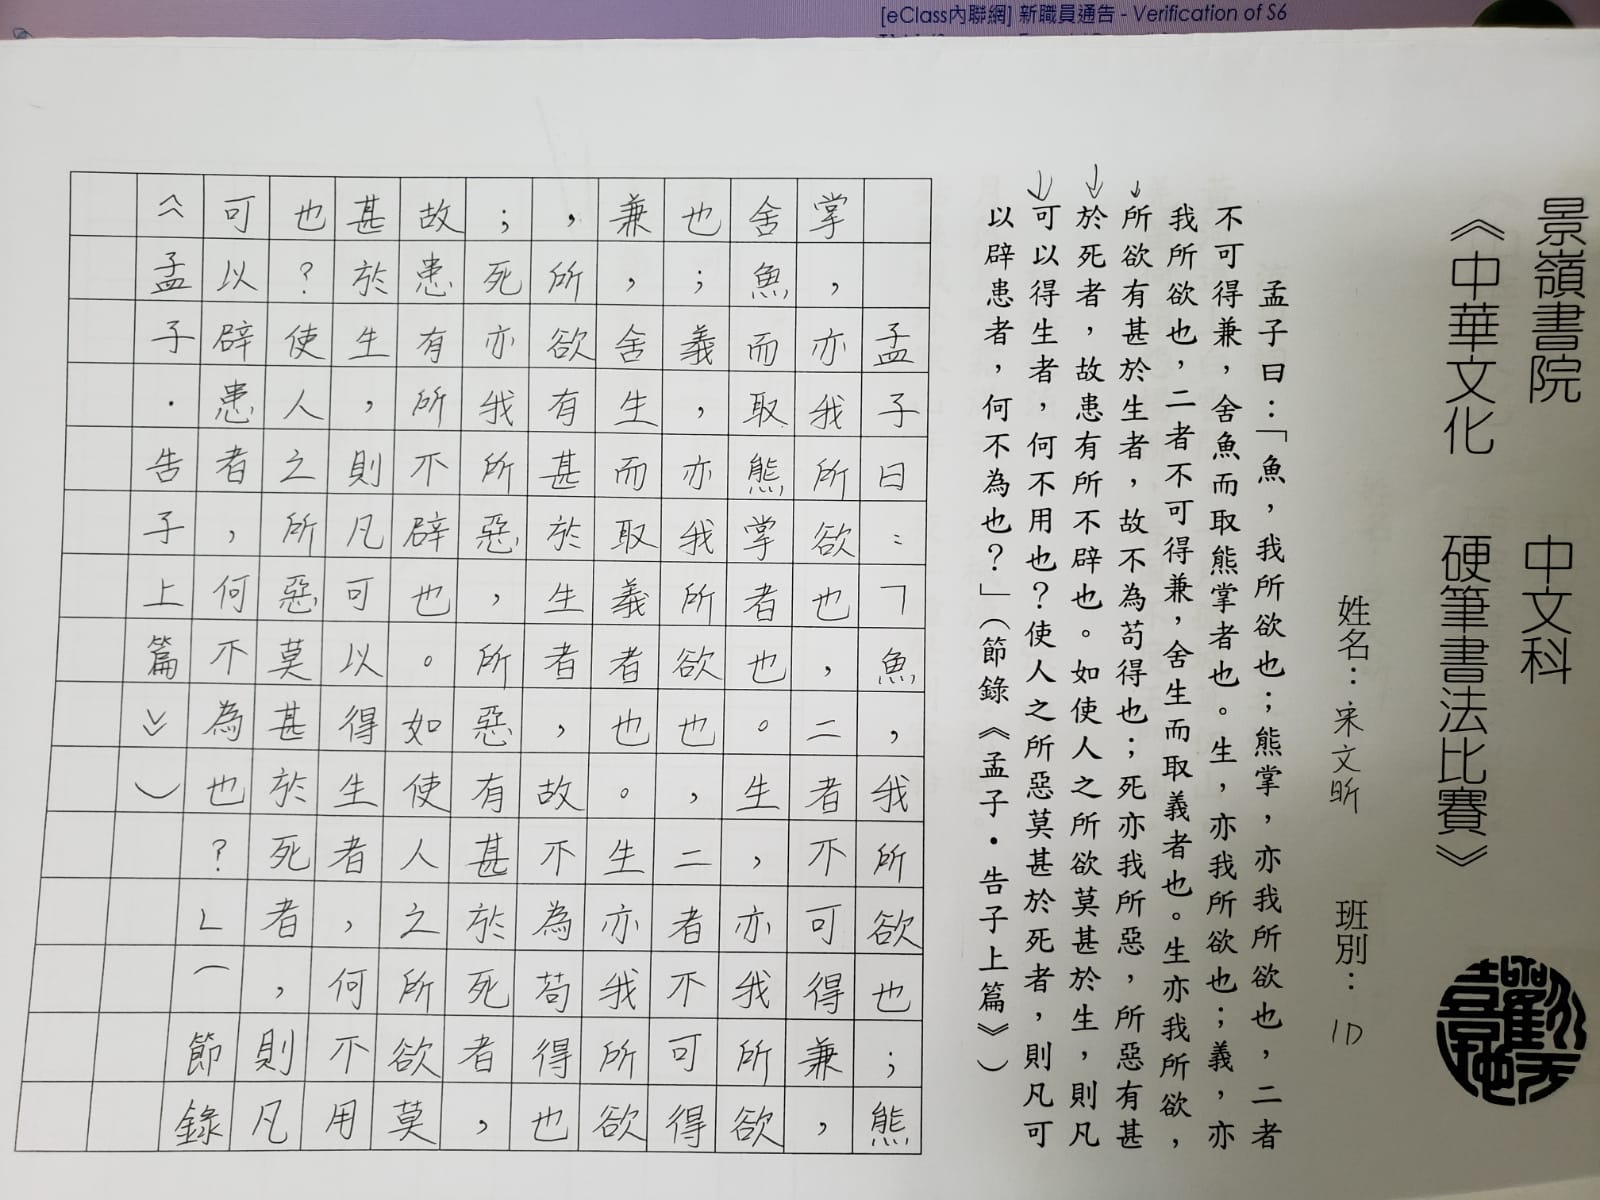 [eClass內聯網] 新職員通告 - Verification of S6
景嶺書院 中文科
《中華文化 硬筆書法比賽》
姓名：宋文昕 班別：1D
孟子曰：「魚，我所欲也；熊掌，亦我所欲也，二者
不可得兼，舍魚而取熊掌者也。生，亦我所欲也；義，亦
我所欲也，二者不可得兼，舍生而取義者也。生亦我所欲，
所欲有甚於生者，故不為苟得也；死亦我所惡，所惡有甚
於死者，故患有所不辟也。如使人之所欲莫甚於生，則凡
可以得生者，何不用也？使人之所惡莫甚於死者，則凡可
以辟患者，何不為也？」（節錄《孟子‧告子上篇》）
孟子曰：「魚，我所欲也；熊
掌，亦我所欲也，二者不可得兼，
舍魚而取熊掌者也。生，亦我所欲
也；義，亦我所欲也，二者不可得
兼，舍生而取義者也。生亦我所欲
，所欲有甚於生者，故不為苟得也
；死亦我所惡，所惡有甚於死者，
故患有所不辟也。如使人之所欲莫
甚於生，則凡可以得生者，何不用
也？使人之所惡莫甚於死者，則凡
可以辟患者，何不為也？」（節錄
《孟子‧告子上篇》）